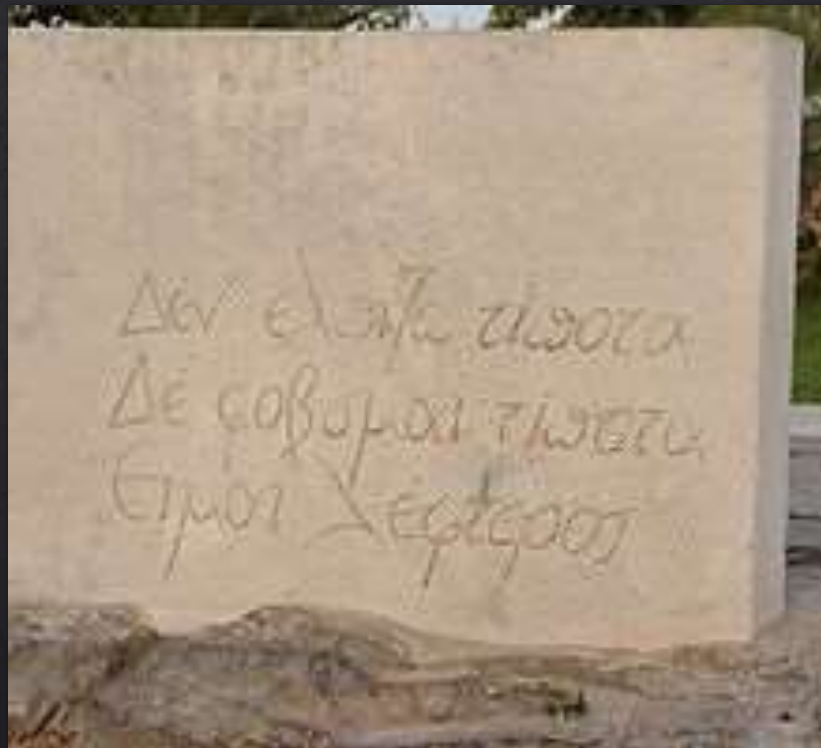 Δέν ελπίζω τίποτα
Δέ φοβυμαι τίποτα
Ειμαι λέφτερος